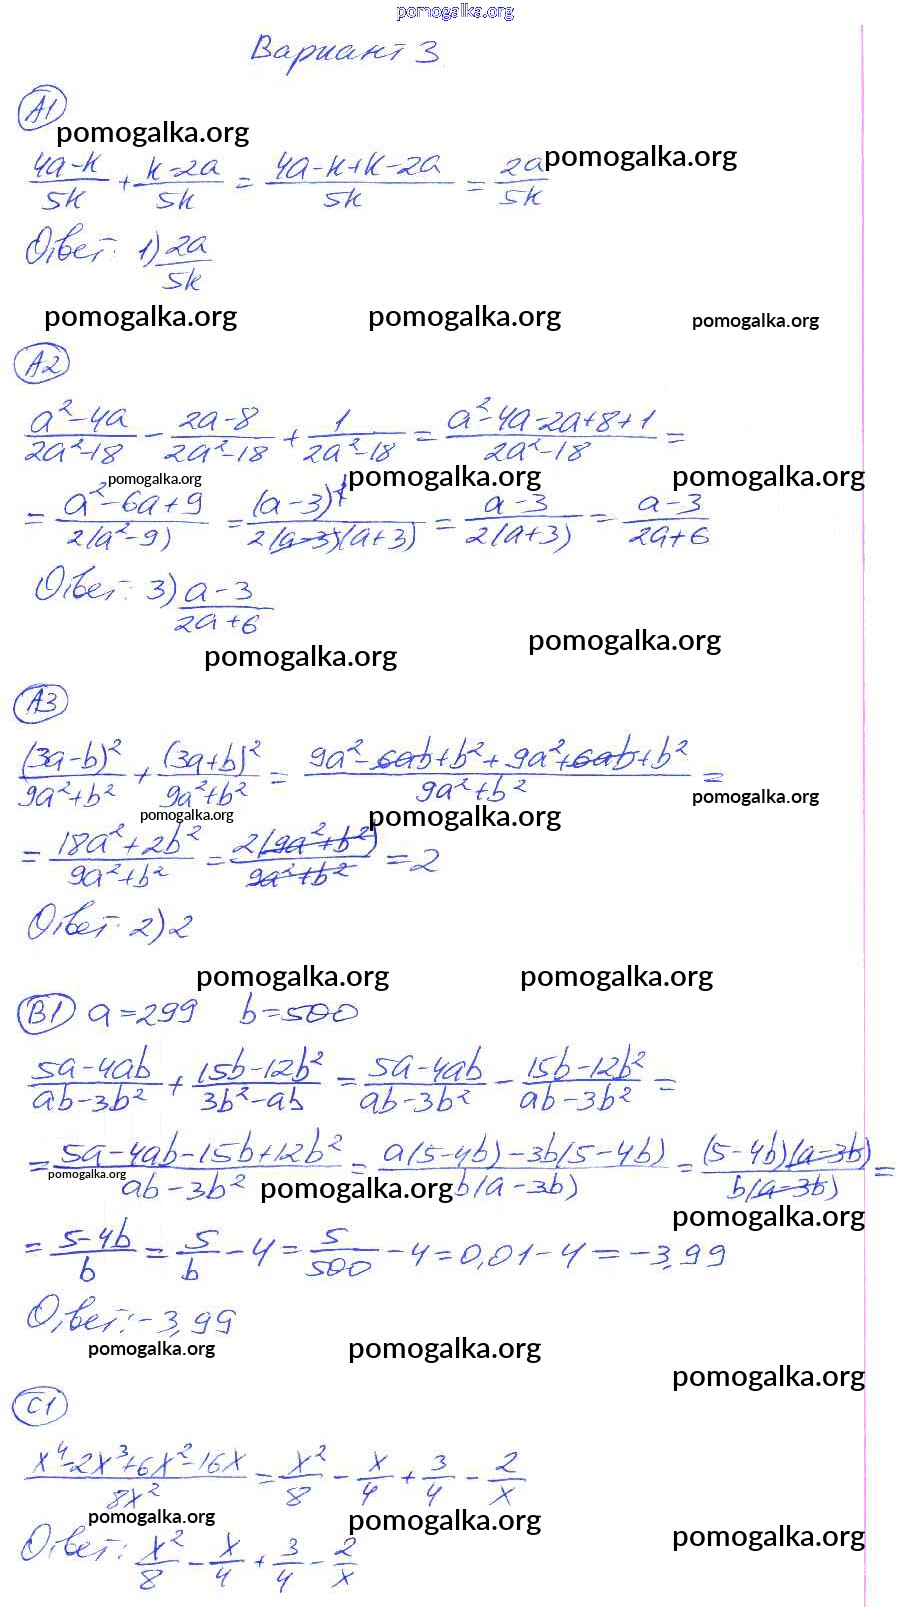 pomogalka.org
Вариант 3
А1
pomogalka.org
(4a-k)/(5k) + (k-2a)/(5k) = (4a-k+k-2a)/(5k) = (2a)/(5k) pomogalka.org
Ответ: 1) (2a)/(5k)
pomogalka.org pomogalka.org pomogalka.org
А2
(a²-4a)/(2a²-18) - (2a-8)/(2a²-18) + 1/(2a²-18) = (a²-4a-2a+8+1)/(2a²-18) =
pomogalka.org pomogalka.org pomogalka.org
= (a²-6a+9)/(2(a²-9)) = (a-3)²/(2(a-3)(a+3)) = (a-3)/(2(a+3)) = (a-3)/(2a+6)
Ответ: 3) (a-3)/(2a+6)
pomogalka.org pomogalka.org
А3
(3a-b)²/(9a²+b²) + (3a+b)²/(9a²+b²) = (9a²-6ab+b²+9a²+6ab+b²)/(9a²+b²) =
pomogalka.org pomogalka.org pomogalka.org
= (18a²+2b²)/(9a²+b²) = 2(9a²+b²)/(9a²+b²) = 2
Ответ: 2) 2
pomogalka.org pomogalka.org
В1 a=299 b=500
(5a-4ab)/(ab-3b²) + (15b-12b²)/(3b²-ab) = (5a-4ab)/(ab-3b²) - (15b-12b²)/(ab-3b²) =
= (5a-4ab-15b+12b²)/(ab-3b²) = (a(5-4b)-3b(5-4b))/(b(a-3b)) = ((5-4b)(a-3b))/(b(a-3b)) =
pomogalka.org pomogalka.org pomogalka.org
= (5-4b)/b = 5/b - 4 = 5/500 - 4 = 0,01 - 4 = -3,99
Ответ: -3,99
pomogalka.org pomogalka.org pomogalka.org
С1
(x⁴-2x³+6x²-16x)/(8x²) = x²/8 - x/4 + 3/4 - 2/x
pomogalka.org pomogalka.org pomogalka.org
Ответ: x²/8 - x/4 + 3/4 - 2/x